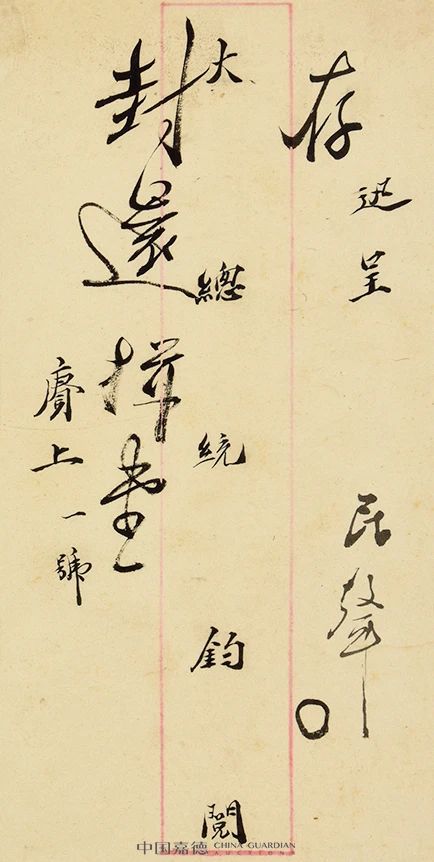 迅呈
存
大總統鈞閱
封還揖唐
賡上一號
中国嘉德 CHINA GUARDIAN
AUCTIONS